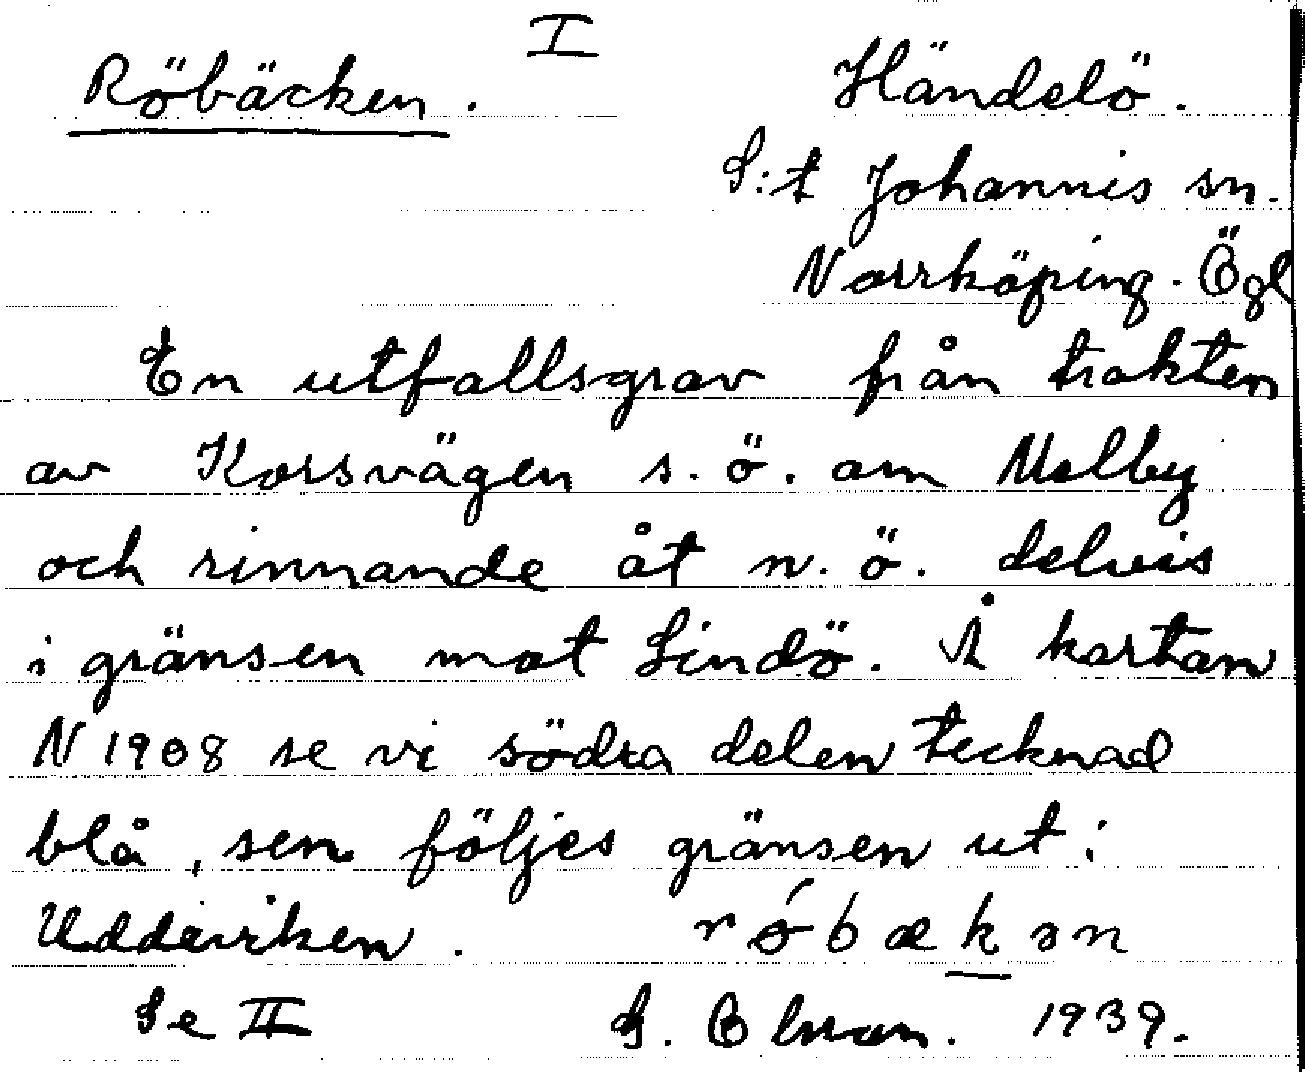 I
Röbäcken. Händelö.
S:t Johannis sn.
Norrköping. Ögl
En utfallsgrav från trakten
av Korsvägen s.ö. om Melby
och rinnande åt n.ö. delvis
i gränsen mot Lindö. Å kartan
N 1908 se vi södra delen tecknad
blå, sen följes gränsen ut i
Uddviken. róbækən
Se II S. 1939.